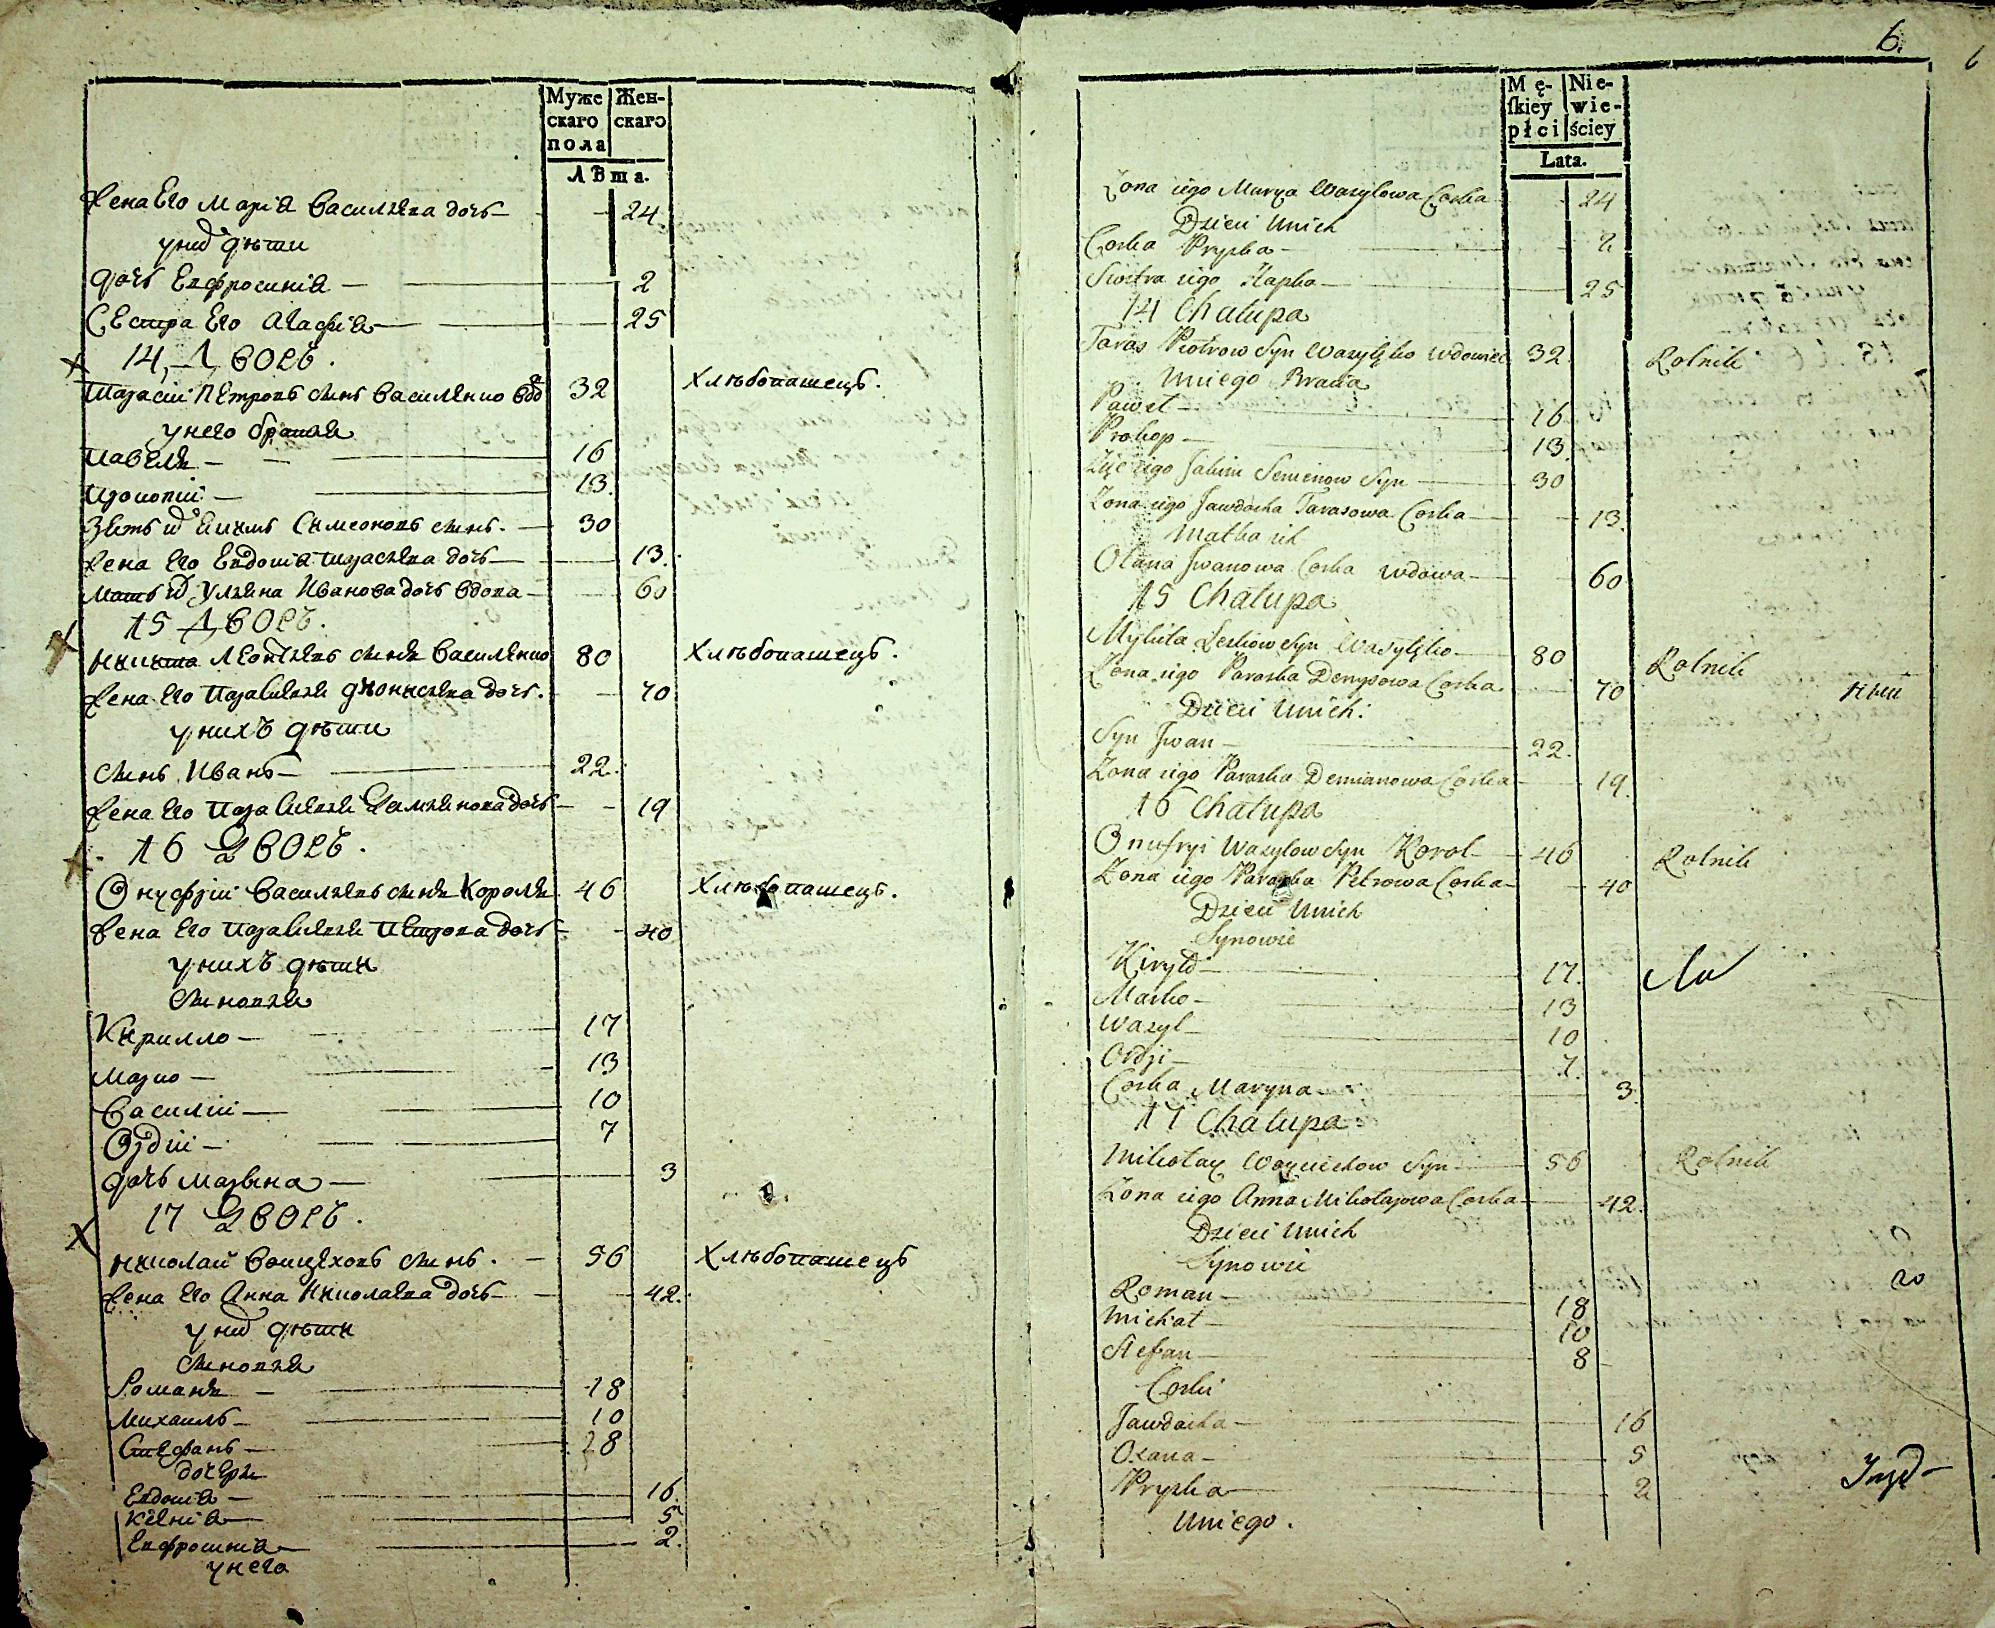 Муже Жен-
скаго скаго
пола
Лѣта.
Жена Его Марія Васильева дочь — 24
у них дѣти
дочь Евфросинія — 2
Сестра Его Агафія — 25
14, Дворъ.
Тарасій Петровъ сынъ Василенко вдо 32 Хлѣбопашецъ.
у него братья
Павелъ — 16
Прокопій — 13.
Зять их Екимъ Симеоновъ сынъ. — 30
Жена Его Евдокія Тарасьева дочь — 13.
Мать их Ульяна Иванова дочь вдова — 60
15 Дворъ.
Никита Леонтьевъ сынъ Василенко 80 Хлѣбопашецъ.
Жена Его Параскевія Діонисьева дочь. 70
у нихъ дѣти
сынъ Иванъ — 22.
Жена Его Параскевія Дамьянова дочь — 19
16 Дворъ.
Онуфрій Васильевъ сынъ Король 46 Хлѣбопашецъ.
Жена Его Параскевія Петрова дочь — 40
у нихъ дѣти
сыновья
Кирилло — 17
Марко — 13
Василій — 10
Овдій — 7
дочь Марына — 3
17 Дворъ.
Николай Войцеховъ сынъ. — 56 Хлѣбопашецъ
Жена Его Анна Николаева дочь — 42.
у них дѣти
сыновья
Романъ — 18
Михаилъ — 10
Стефанъ — 8
дочери
Евдокія — 16.
Ксенія — 5
Евфросинія — 2.
у него
6.
6
Mę- Nie-
skiey wie-
płci ściey
Lata.
Żona iego Marya Wasylowa Corka 24
Dzieci Unich
Corka Pryska — 2
Siostra iego Hapka — 25
14 Chałupa
Taras Piotrow Syn Wasylęko wdowiec 32 Rolnik
Uniego Bracia
Paweł — 16
Prokop — 13.
Zięć iego Jakim Semenow Syn — 30
Żona iego Jawdocha Tarasowa Corka — 13.
Matka ich
Olana Jwanowa Corka wdowa — 60
15 Chałupa
Mykita Leskow Syn Wasylęko — 80 Rolnik
Żona iego Paraska Denysowa Corka 70 ный
Dzieci Unich:
Syn Jwan — 22.
Żona iego Paraska Demianowa Corka — 19.
16 Chałupa
Onufryi Wasylow Syn Korol — 46 Rolnik
Żona iego Paraska Petrowa Corka — 40
Dzieci Unich
Synowie
Kiryło — 17.
Marko — 13
Wasyl — 10
Owdji — 7.
Corka Maryna — 3.
17 Chałupa
Mikołay Woyciechow Syn — 56 Rolnik
Żona iego Anna Mikołajowa Corka — 42.
Dzieci Unich
Synowie
Roman — 18
Michał — 10
Stefan — 8
Corki
Jawdocha — 16
Oxana — 5
Pryska — 2
Uniego.